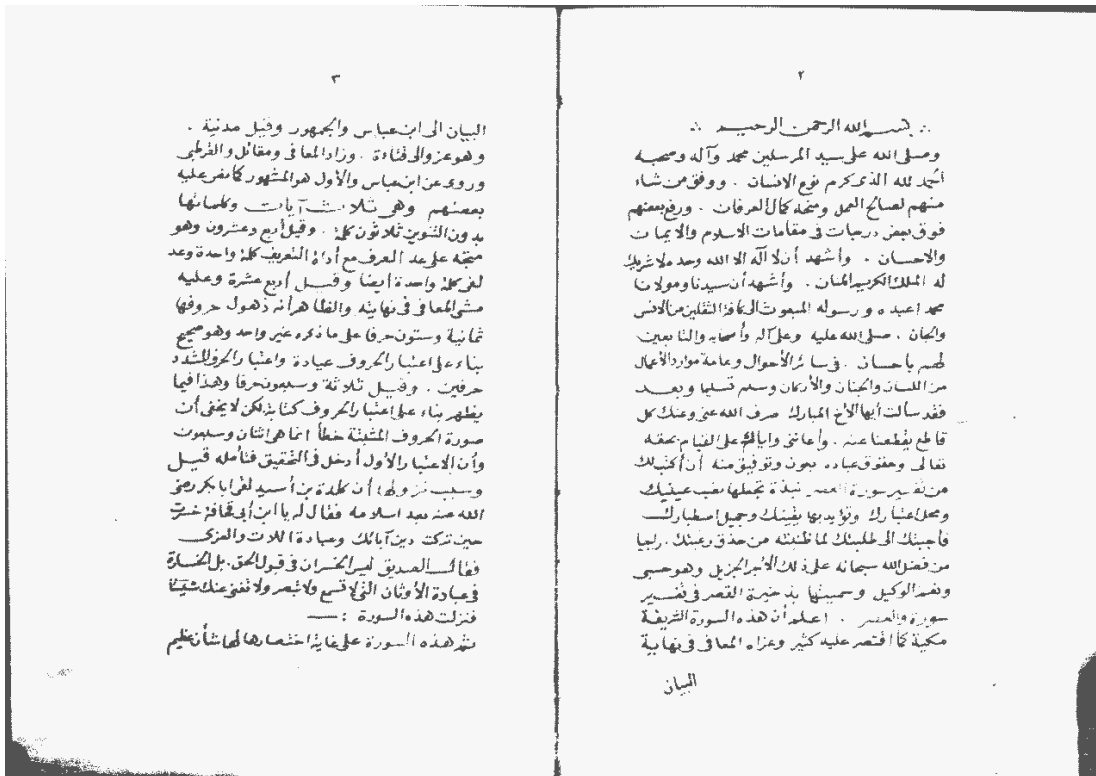 ٢
بسم الله الرحمن الرحيم
وصلى الله على سيد المرسلين محمد وآله وصحبه
الحمد لله الذى كرم نوع الانسان . ووفق من شاء
منهم لصالح العمل ومنحه كمال العرفان . ورفع بعضهم
فوق بعض درجات فى مقامات الاسلام والايمان
والاحسان . وأشهد أن لا آله الا الله وحده لا شريك
له الملك الكريم المنان . وأشهد أن سيدنا ومولانا
محمدا عبده ورسوله المبعوث الى كافة الثقلين من الانس
والجان . صلى الله عليه وعلى آله وأصحابه والتابعين
لهم باحسان . فى سائر الأحوال وعامة موارد الأعمال
من اللسان والجنان والأركان وسلم تسليما وبعد
فقد سألت أيها الأخ المبارك صرف الله عنى وعنك كل
قاطع يقطعنا عنه . وأعاننى واياك على القيام بحقه
تعالى وحقوق عباده بعون وتوفيق منه أن أكتب لك
من تفسير سورة العصر نبذة تجعلها نصب عينيك
ومحل اعتبارك وتؤيد بها يقينك وجميل اصطبارك
فأجبتك الى طلبتك لما ظننته من حذق رغبتك . راجيا
من فضل الله سبحانه على ذلك الأجر الجزيل وهو حسبى
ونعم الوكيل وسميتها بذخيرة القصر فى تفسير
سورة والعصر . اعلم أن هذه السورة الشريفة
مكية كما اقتصر عليه كثير وعزاه المعافى فى نهاية
البيان
٣
البيان الى ابن عباس والجمهور وقيل مدنية .
وهو عزو الى قتادة . وزاد المعافى ومقاتل والقرطبى
وروى عن ابن عباس والأول هو المشهور كما نص عليه
بعضهم وهى ثلاث آيات وكلماتها
بدون التنوين ثلاثون كلمة . وقيل أربع وعشرون وهو
متجه على عد العرف مع أداة التعريف كلمة واحدة وعد
لفى كلمة واحدة أيضا وقيل أربع عشرة وعليه
مشى المعافى فى نهايته والظاهر أنه ذهول حروفها
ثمانية وستون حرفا على ما ذكره غير واحد وهو صحيح
بناء على اعتبار الحروف عبادة واعتبار الحرف المشدد
حرفين . وقيل ثلاثة وسبعون حرفا وهذا فيما
يظهر بناء على اعتبار الحروف كتابة لكن لا يخفى أن
صورة الحروف المثبتة خطأ انما هى اثنتان وسبعون
وأن الاعتبار الأول أدخل فى التحقيق فتأمله قيل
وسبب نزولها أن كلدة بن أسيد لقى ابا بكر رضى
الله عنه بعد اسلامه فقال له يا ابن أبى قحافة خسرت
حين تركت دين آبائك وعبادة اللات والعزى
فقال الصديق ليس الخسران فى قبول الحق . بل الخسارة
فى عبادة الأوثان التى لا تسمع ولا تبصر ولا تغنى عنك شيئا
فنزلت هذه السورة : ــ
ثم هذه السورة على غاية اختصارها لها شأن عظيم